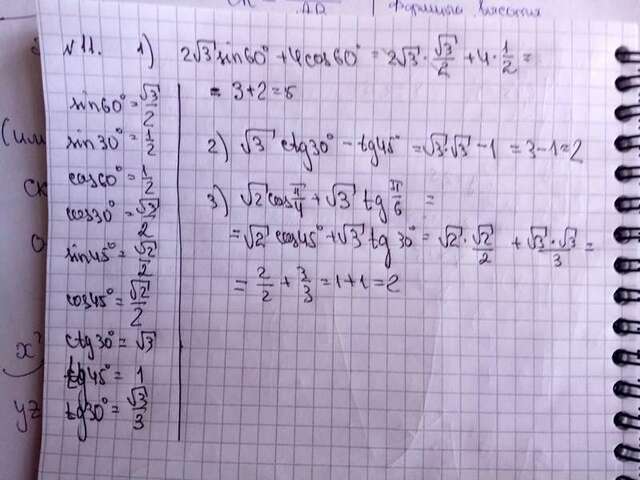 Формулы
№11. 1) 2√3 sin60° + 4cos60° = 2√3 · √3/2 + 4 · 1/2 =
= 3+2=5
2) √3 ctg30° - tg45° = √3·√3 - 1 = 3-1=2
3) √2 cos π/4 + √3 tg π/6 =
= √2 cos45° + √3 tg 30° = √2 · √2/2 + √3 · √3/3 =
= 2/2 + 3/3 = 1+1 = 2
sin60° = √3/2
sin30° = 1/2
cos60° = 1/2
cos30° = √2/2
sin45° = √2/2
cos45° = √2/2
ctg30° = √3
tg45° = 1
tg30° = √3/3